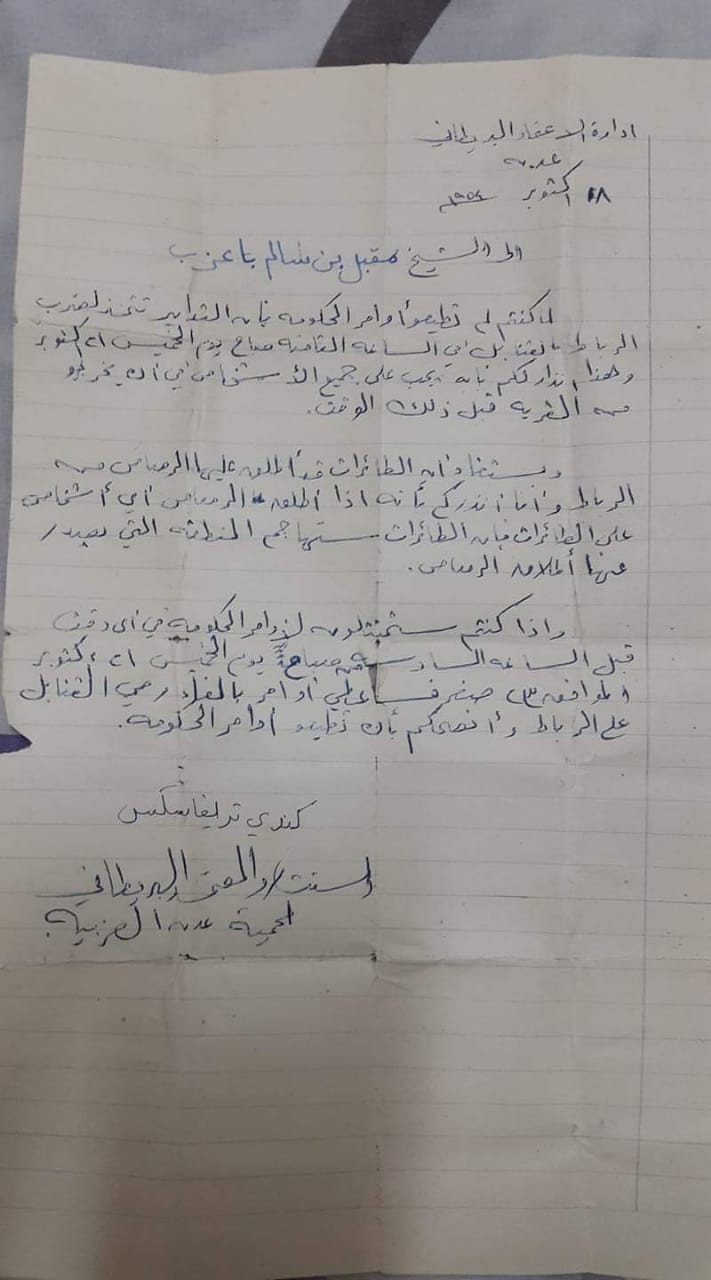 ادارة الاعتماد البريطاني
عدن
١٨ اكتوبر ١٩٥٤م
الى الشيخ مقبل بن سالم باعزب
لما كنتم لم تطيعوا أوامر الحكومه فإن التدابير تتخذ لضرب
الرباط بالقنابل في الساعه الثامنه صباح يوم الخميس ٢١ اكتوبر
وهذا انذار لكم بانه يجب على جميع الأشخاص في أن يخرجو
من القريه قبل ذلك الوقت.
ويستفاد أن الطائرات قد أطلق عليها الرصاص من
الرباط وأنا أنذركم بأنه اذا أطلق الرصاص أي أشخاص
على الطائرات فإن الطائرات ستهاجم المنطقه التي يصدر
منها أطلاق الرصاص.
واذا كنتم ستمتثلون لأوامر الحكومه في أي وقت
قبل الساعه السادسه من صباح يوم الخميس ٢١ اكتوبر
الموافق ٢٣ صفر فسأعطي أوامر بالغاء رمي القنابل
على الرباط وأنصحكم بأن تطيعو أوامر الحكومه.
كندي تريفاسكس
والمعتمد البريطاني
لحمية عدن الغربيه.